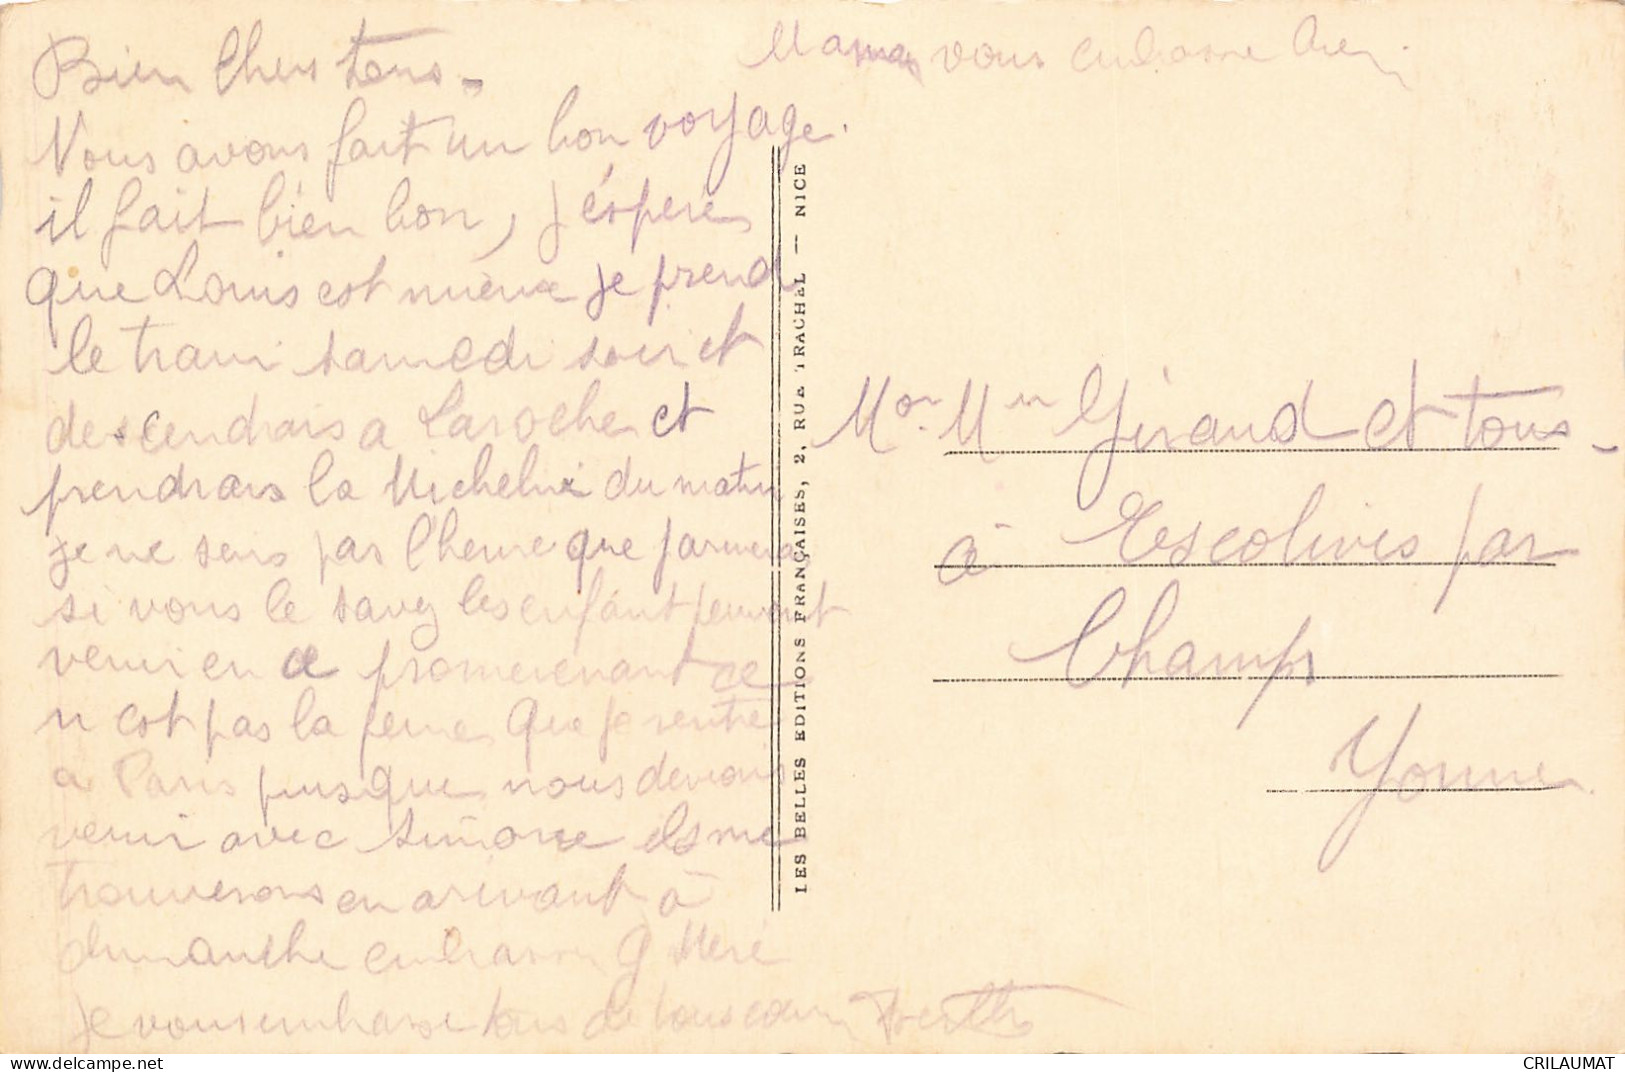 Bien Chers tous.
Nous avons fait un bon voyage.
il fait bien bon, j'éspères
que Louis est mieux je prend
le train samedi soir et
descendrais a Laroche et
prendrais la Micheline du matin
je ne sais pas l'heure que j'arriverai
si vous le savez les enfant peuvent
venir en ce promenenant ce
n est pas la peine que je rentre
a Paris puisque nous devions
venir avec Simone ils me
trouverons en arivant à
dimanche embrasser g Mère
je vous embrasse tous de tous cœur Berthe
Maman vous embrasse bien.
Mor Mm Giraud et tous.
à Escolives par
Champs
Yonne
LES BELLES EDITIONS FRANÇAISES, 2, RUE TRACHEL — NICE
delcampe.net
CRILAUMAT